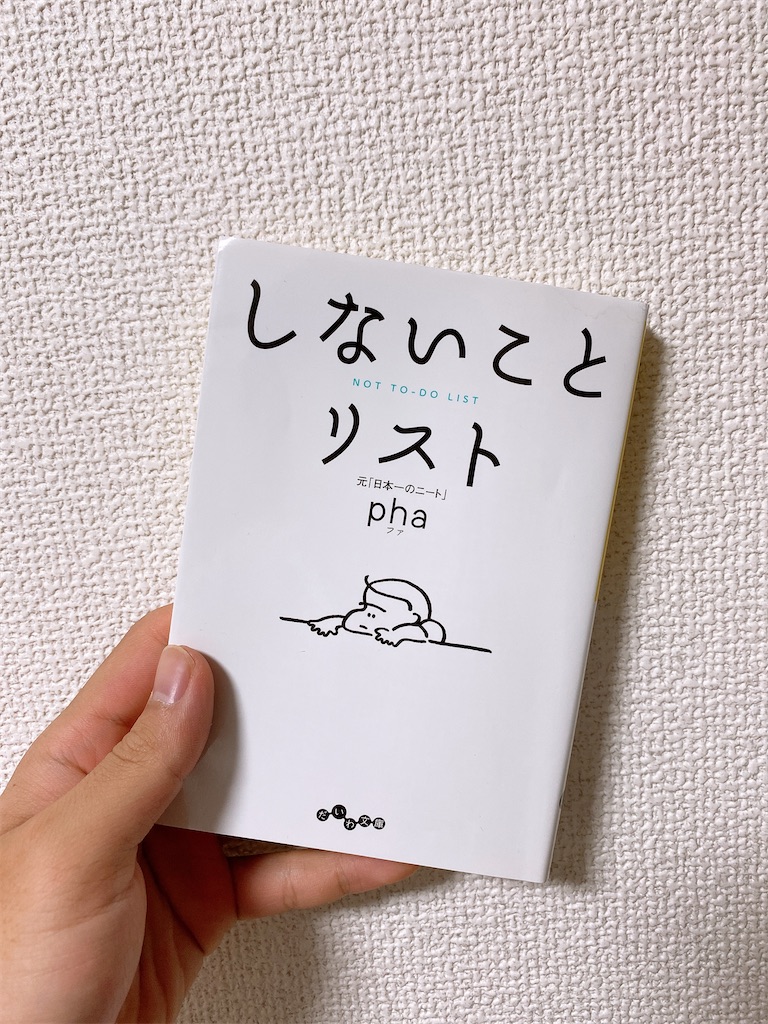 しないこと
NOT TO-DO LIST
リスト
元「日本一のニート」
pha
ファ
だいわ文庫